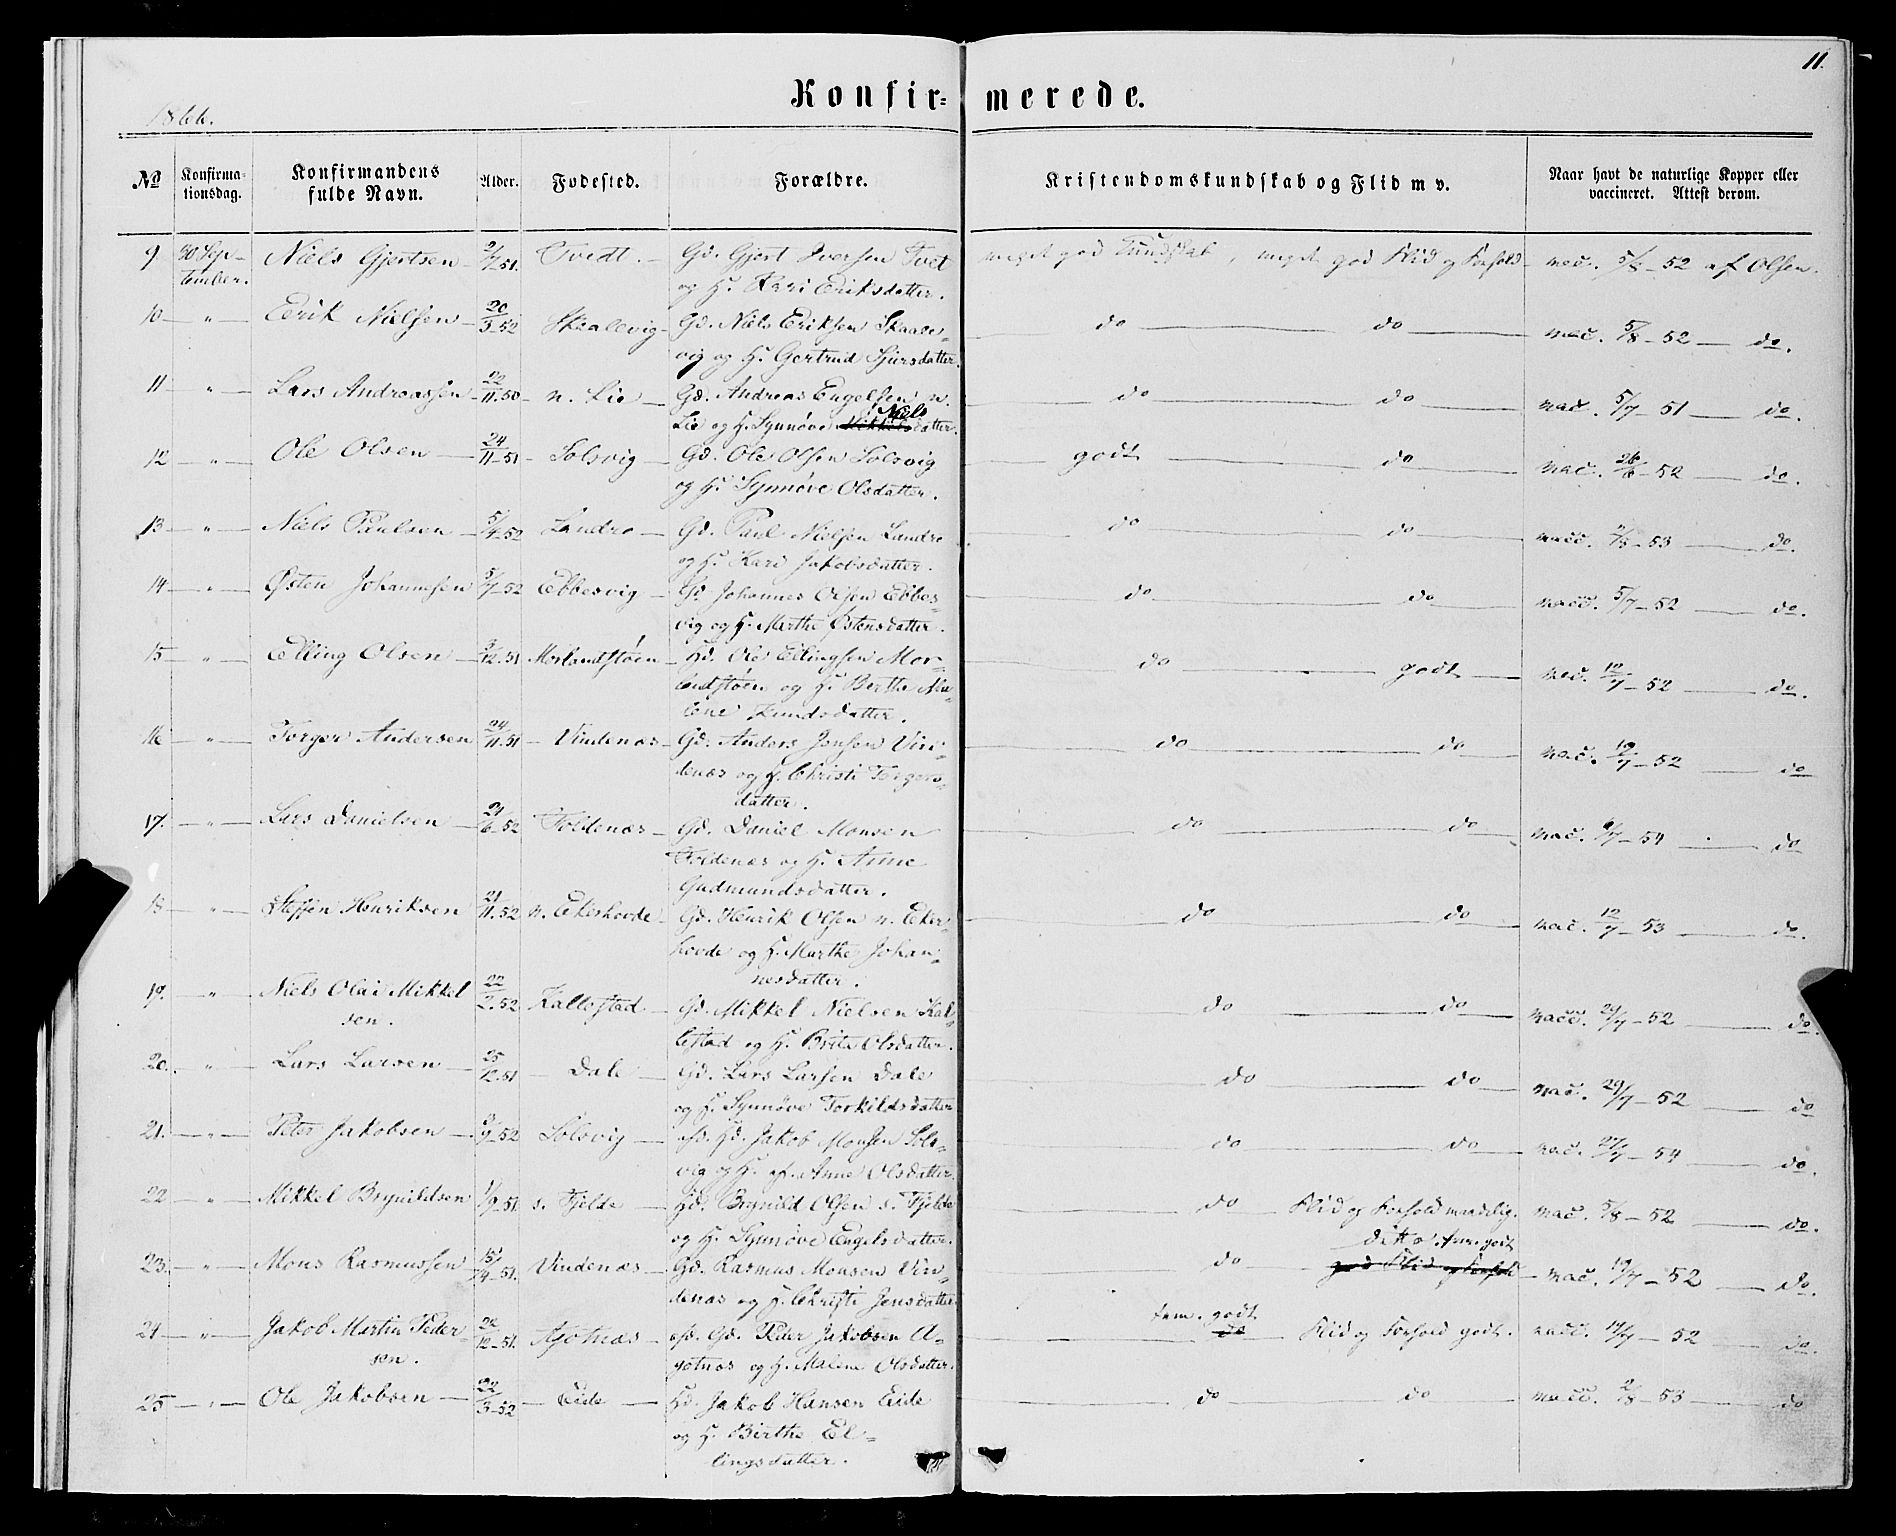 11.
Konfir- merede.
1866.
No Konfirma-tionsdag. Konfirmandens fulde Navn. Alder. Fodested. Forældre. Kristendomskundskab og Flid m v. Naar havt de naturlige Kopper eller vaccineret. Attest derom.
9 30 Sep- Niels Gjertsen 2/7 51. Tvedt. Gd. Gjert Iversen Tvet meget god Kundskab, meget god Flid og Forhold vac. 5/8 - 52 af Olsen.
tember. og H. Kari Eriksdatter.
10 " Erik Nielsen 20/3 52 Skaalevig Gd. Niels Eriksen Skaale- do do vac. 5/8 - 52 do.
vig og H. Gertrud Sjursdatter.
11 " Lars Andreassen 22/11. 50 n. Lie Gd. Andreas Engelsen n. do do vac. 5/7 51 do.
Niels
Lie og H. Synnøve Mikkelsdatter.
12 " Ole Olsen 24/11 - 51 Solsvig Gd. Ole Olsen Solsvig godt do vac. 26/8 - 52 do.
og H. Synnøve Olsdatter.
13 " Niels Paulsen 5/4 - 52 Landro Gd. Paul Nielsen Landro do do vacc. 2/8 - 53 do.
og H. Kari Jakobsdatter.
14 " Østen Johannesen 5/7 - 52 Ebbesvig Gd Johannes Olsen Ebbes- do do vacc. 5/7 - 52 do.
vig og H. Marthe Østensdatter.
15 " Elling Olsen 3/12. 51 Morlandstøen Hd. Ole Ellingsen Mor- do godt vac. 12/7 - 52 do.
landstøen og H. Berthe Ma-
lene Knudsdatter.
16 " Torger Andersen 24/11. 51 Vindenæs Gd. Anders Jensen Vin- do do vac. 19/7 - 52 do
denæs og H. Christi Torgers-
datter.
17. " Lars Danielsen 24/6. 52 Toldenæs Gd. Daniel Monsen do do vac. 9/7 - 54 do
Toldenæs og H. Anne
Gudmundsdatter.
18 " Steffen Henriksen 21/11. 52 n. Ekerhovde Gd. Henrik Olsen n. Eker- do do vac. 12/7 - 53 do.
hovde og H. Marthe Johan-
nesdatter.
19. " Niels Olai Mikkel 22/2. 52 Kallestad Gd. Mikkel Nielsen Kal- do do vacc. 29/7 - 52 do.
sen. lestad og H. Brite Olsdatter.
20. " Lars Larsen 25/12. 51 Dale Gd. Lars Larsen Dale do do vac. 29/7 - 52 do
og H. Synnøve Torkildsdatter
21. " Peter Jakobsen 3/9 - 52 Solsvig afd. Hd. Jakob Monsen Sols- do do vac. 27/7 - 54 do.
vig og H. af. Anne Olsdatter.
22 " Mikkel Brynildsen 1/9 51. s. Fjelde Hd. Brynild Olsen s. Fjelde do Flid og Forhold maadelig. vac. 5/8 - 52 do.
og H. Synnøve Engelsdatter.
ditto tem. godt
23. " Mons Rasmussen 15/4 - 51. Vindenæs Gd. Rasmus Monsen Vin- do god Flid og Forhold vac. 19/7 - 52 do.
denæs og H. Christi Jensdatter.
tem. godt
24 " Jakob Martin Peder- 22/12 - 51. Agotnæs afd. Gd. Peder Jakobsen A- do Flid og Forhold godt. vacc. 19/7 - 52 do.
sen. gotnæs og H. Malene Olsdatter.
25 " Ole Jakobsen 22/3 - 52 Eide Hd. Jakob Hansen Eide do do vacc. 2/8 - 53 do
og H. Birthe El-
lingsdatter.